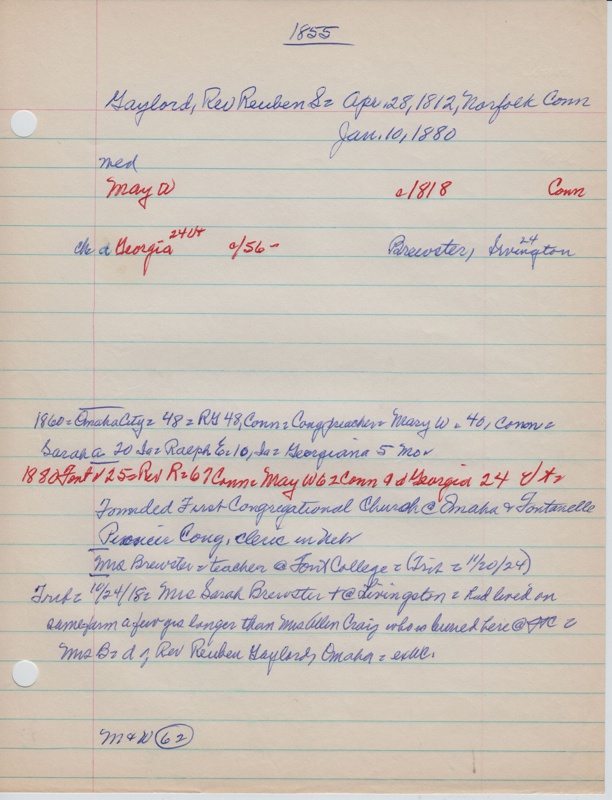 1855
Gaylord, Rev Reuben S= Apr. 28, 1812, Norfolk Conn
Jan. 10, 1880
med
May W c1818 Conn
ch d Georgia 24 Vt c/56 - Brewster, Irvington 24
1860 = Omaha City = 48 = RG 48, Conn = Cong preacher = Mary W = 40, Conn =
Sarah a 20 Ia = Ralph E = 10, Ia = Georgiana 5 Mo
1880 Font 25 = Rev R = 67 Conn = May W 62 Conn d Georgia 24
Founded First Congregational Church @ Omaha & Fontanelle
Pioneer Cong. cleric in Neb
Mrs Brewster = teacher @ Font College = (Trib = 11/20/24)
Trib = 10/24/18 = Mrs Sarah Brewster + @ Irvington = had lived on
same farm a few yrs longer than Mrs Ellen Craig who is buried here @ =
Mrs B = d of Rev Reuben Gaylord, Omaha =
M & W 62